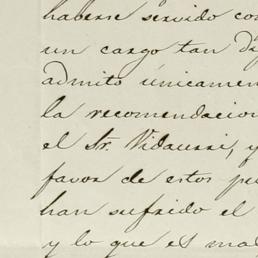 haberse servido con
un cargo tan di
admito únicamen
la recomendacion
el Sr. Vidaurri, y
favor de estos pu
han sufrido el
y lo que es mas